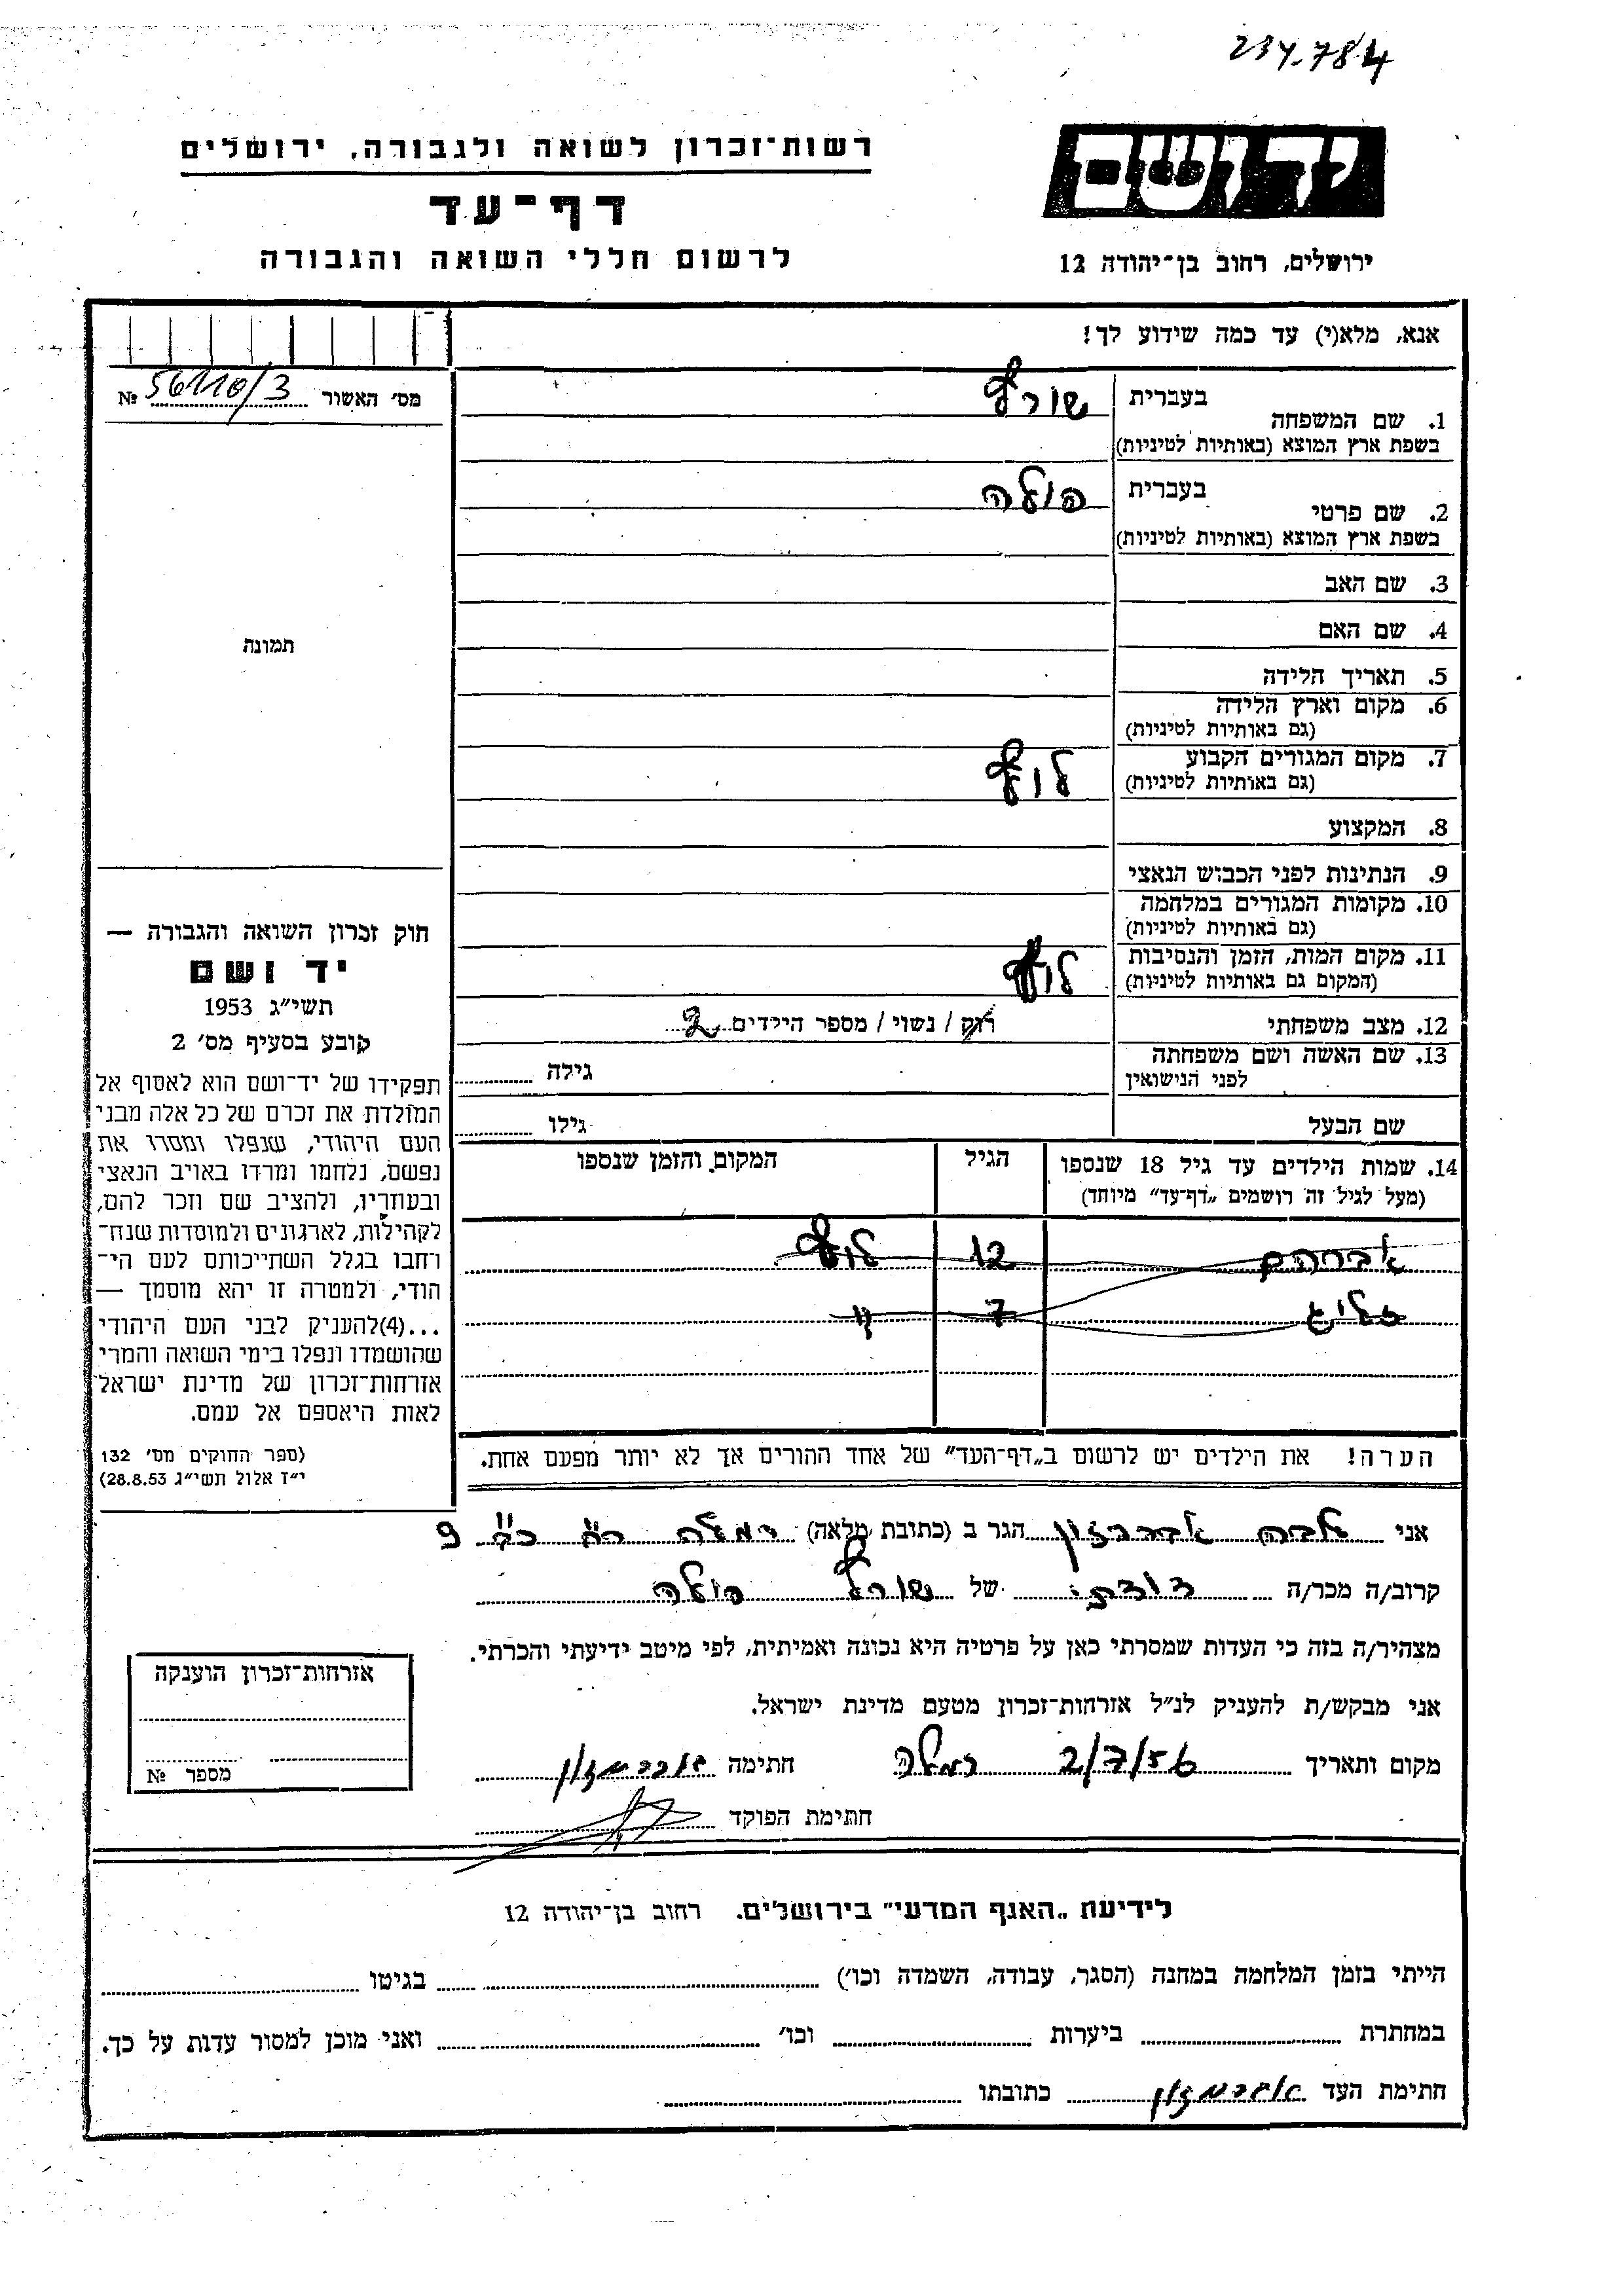 234.784
יד ושם
ירושלים, רחוב בן־יהודה 12
רשות־זכרון לשואה ולגבורה, ירושלים
דף־עד
לרשום חללי השואה והגבורה
אנא, מלא(י) עד כמה שידוע לך!
מס׳ האשור 56110/3 №
תמונה
1. שם המשפחה
בעברית
בשפת ארץ המוצא (באותיות לטיניות)
2. שם פרטי
בעברית
בשפת ארץ המוצא (באותיות לטיניות)
3. שם האב
4. שם האם
5. תאריך הלידה
6. מקום וארץ הלידה
(גם באותיות לטיניות)
7. מקום המגורים הקבוע
(גם באותיות לטיניות)
8. המקצוע
9. הנתינות לפני הכבוש הנאצי
10. מקומות המגורים במלחמה
(גם באותיות לטיניות)
11. מקום המות, הזמן והנסיבות
(המקום גם באותיות לטיניות)
12. מצב משפחתי רוק / נשוי / מספר הילדים 2
13. שם האשה ושם משפחתה
לפני הנישואין
גילה
שם הבעל גילו
14. שמות הילדים עד גיל 18 שנספו הגיל המקום, והזמן שנספו
(מעל לגיל זה רושמים „דף־עד״ מיוחד)
אברהם 12
זליג 7 "
הערה! את הילדים יש לרשום ב„דף־העד״ של אחד ההורים אך לא יותר מפעם אחת.
חוק זכרון השואה והגבורה —
יד ושם
תשי״ג 1953
קובע בסעיף מס׳ 2
תפקידו של יד־ושם הוא לאסוף אל
המולדת את זכרם של כל אלה מבני
העם היהודי, שנפלו ומסרו את
נפשם, נלחמו ומרדו באויב הנאצי
ובעוזריו, ולהציב שם וזכר להם,
לקהילות, לארגונים ולמוסדות שנח־
רחבו בגלל השתייכותם לעם הי־
הודי, ולמטרה זו יהא מוסמך —
...(4)להעניק לבני העם היהודי
שהושמדו ונפלו בימי השואה והמרי
אזרחות־זכרון של מדינת ישראל
לאות היאספם אל עמם.
(ספר החוקים מס׳ 132
י״ז אלול תשי״ג 28.8.53)
אני הגר ב (כתובת מלאה) רמלה 9
קרוב/ה מכר/ה דודתי של
מצהיר/ה בזה כי העדות שמסרתי כאן על פרטיה היא נכונה ואמיתית, לפי מיטב ידיעתי והכרתי.
אני מבקש/ת להעניק לנ״ל אזרחות־זכרון מטעם מדינת ישראל.
מקום ותאריך 2/7/56 רמלה חתימה
חתימת הפוקד
אזרחות־זכרון הוענקה
מספר №
לידיעת „האגף המדעי״ בירושלים. רחוב בן־יהודה 12
הייתי בזמן המלחמה במחנה (הסגר, עבודה, השמדה וכו׳) בגיטו
במחתרת ביערות וכו׳ ואני מוכן למסור עדות על כך.
חתימת העד כתובתו